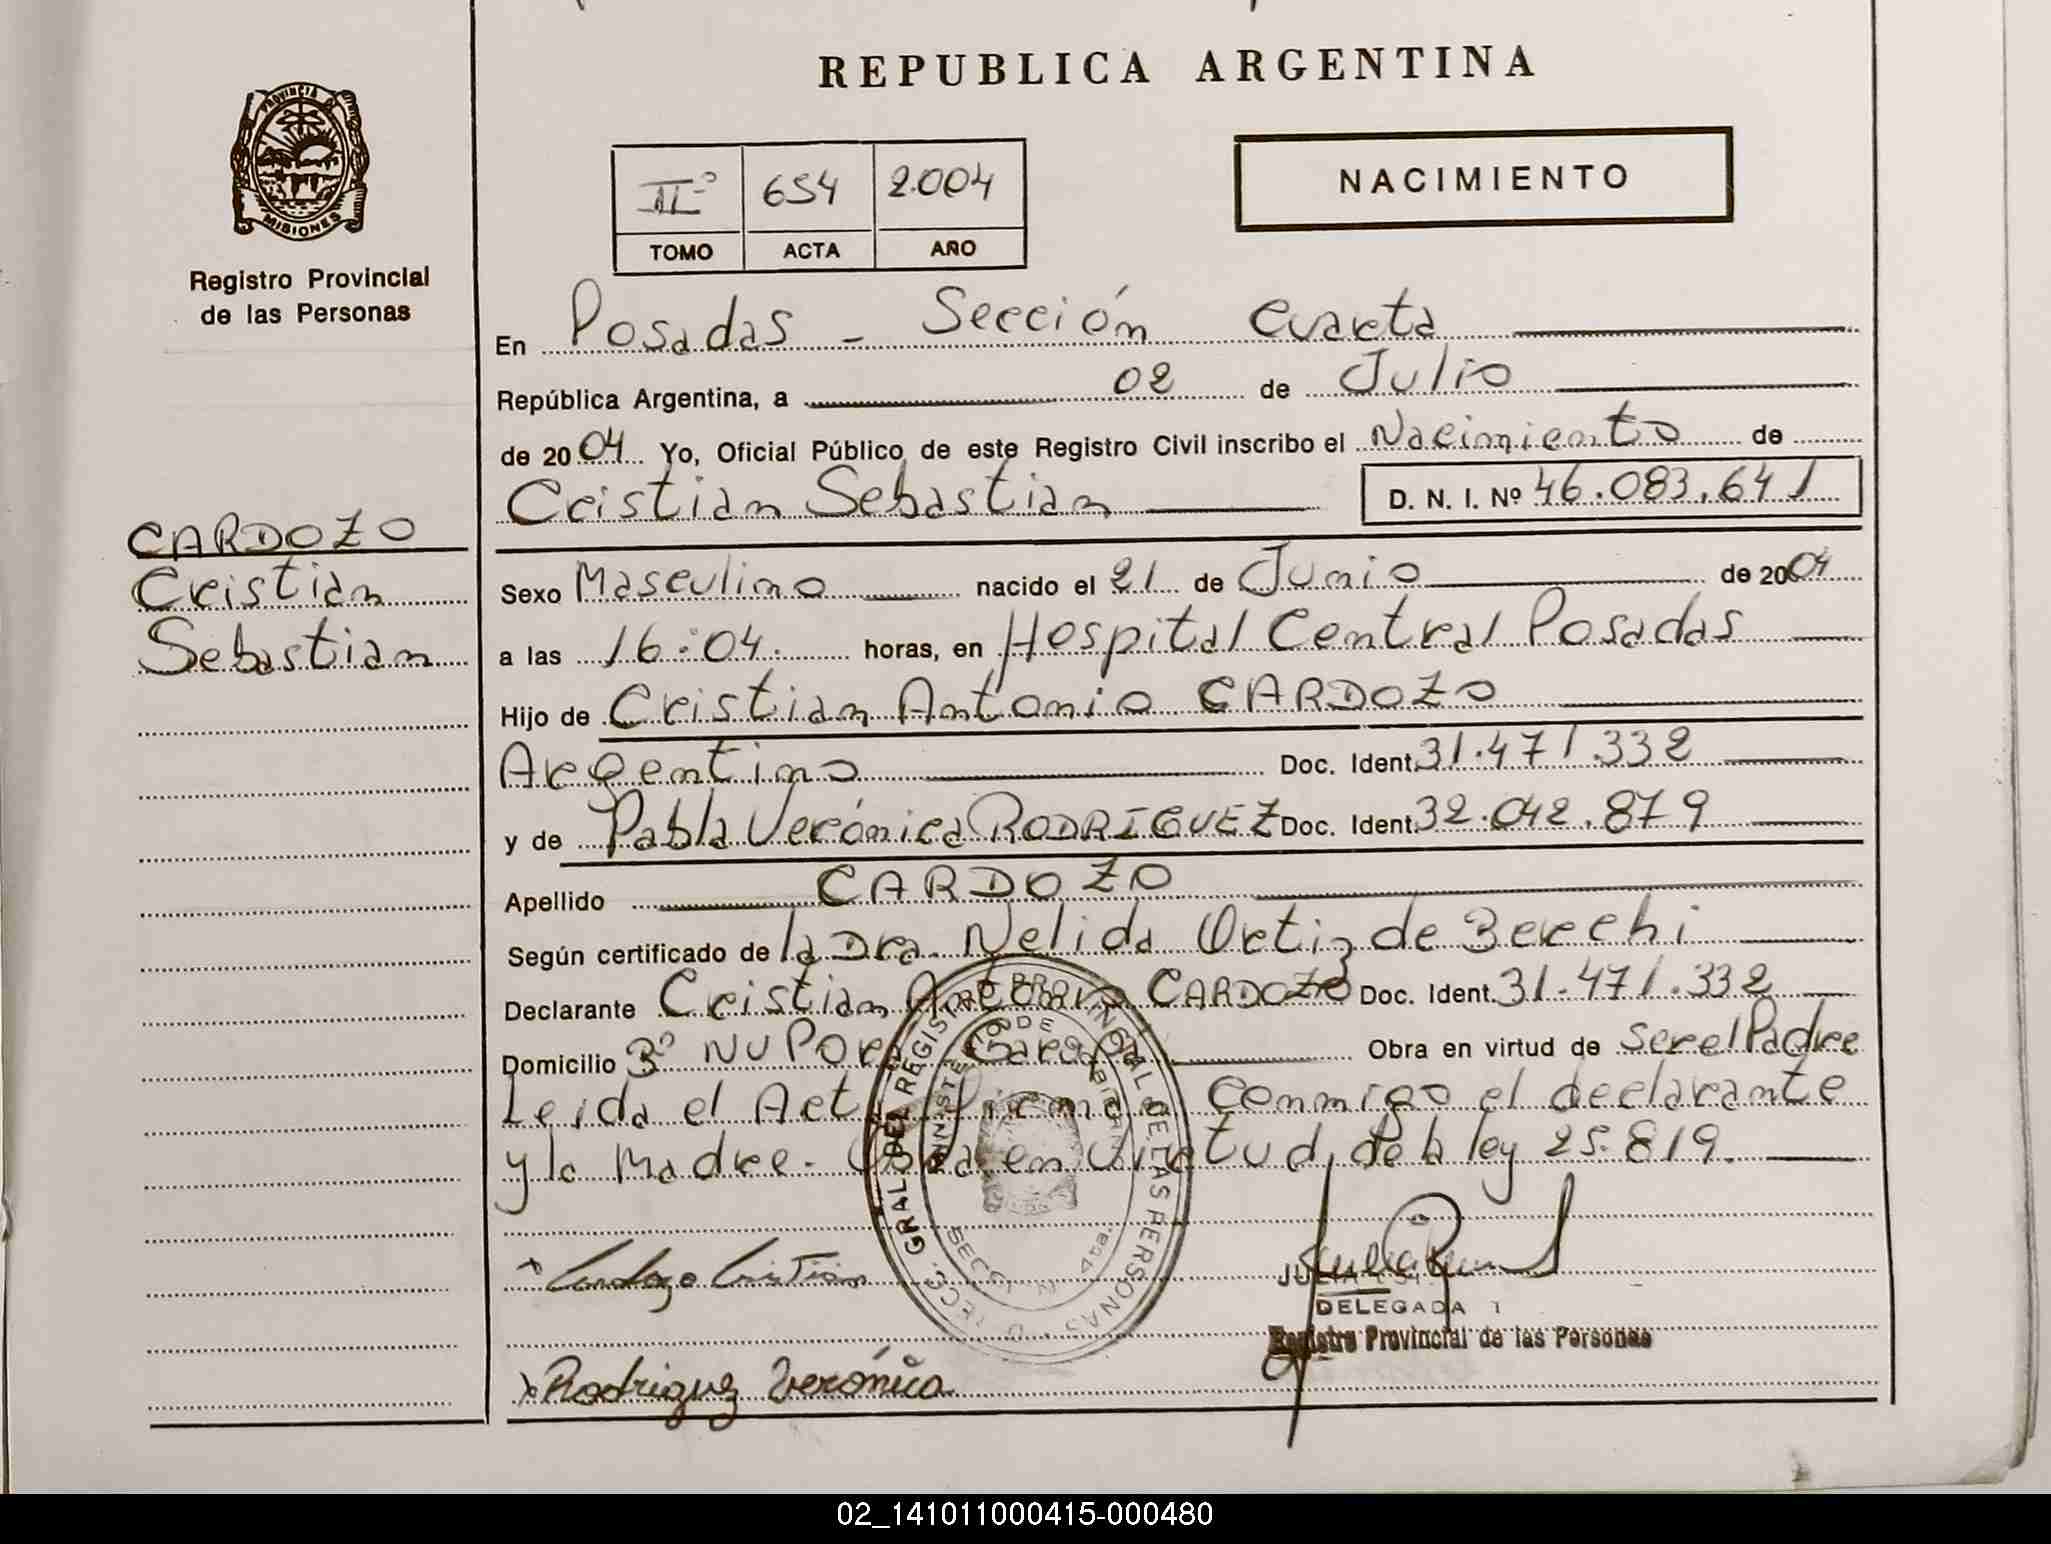 REPUBLICA ARGENTINA
PROVINCIA DE
MISIONES
Registro Provincial
de las Personas
IIº 654 2.004
TOMO ACTA AÑO
NACIMIENTO
En Posadas - Sección Cuarta
República Argentina, a 02 de Julio
de 2004 Yo, Oficial Público de este Registro Civil inscribo el Nacimiento de
Cristian Sebastian D. N. I. Nº 46.083.641
CARDOZO
Cristian
Sebastian
Sexo Masculino nacido el 21 de Junio de 2004
a las 16:04. horas, en Hospital Central Posadas
Hijo de Cristian Antonio CARDOZO
Argentino Doc. Ident. 31.471.332
y de Pabla Verónica RODRIGUEZ Doc. Ident. 32.042.879
Apellido CARDOZO
Según certificado de la Dra. Nelida Ortiz de Berchi
Declarante Cristian Antonio CARDOZO Doc. Ident. 31.471.332
Domicilio 3º NU Obra en virtud de Ser el Padre
Leida el Acta conmigo el declarante
y la Madre. en Virtud, de la ley 25.819.
GRAL DEL REGISTRO PROVINCIAL DE LAS PERSONAS
MINISTERIO DE
4ta.
x Cardozo Cristian
DELEGADA
Registro Provincial de las Personas
x Rodriguez Verónica
02_141011000415-000480